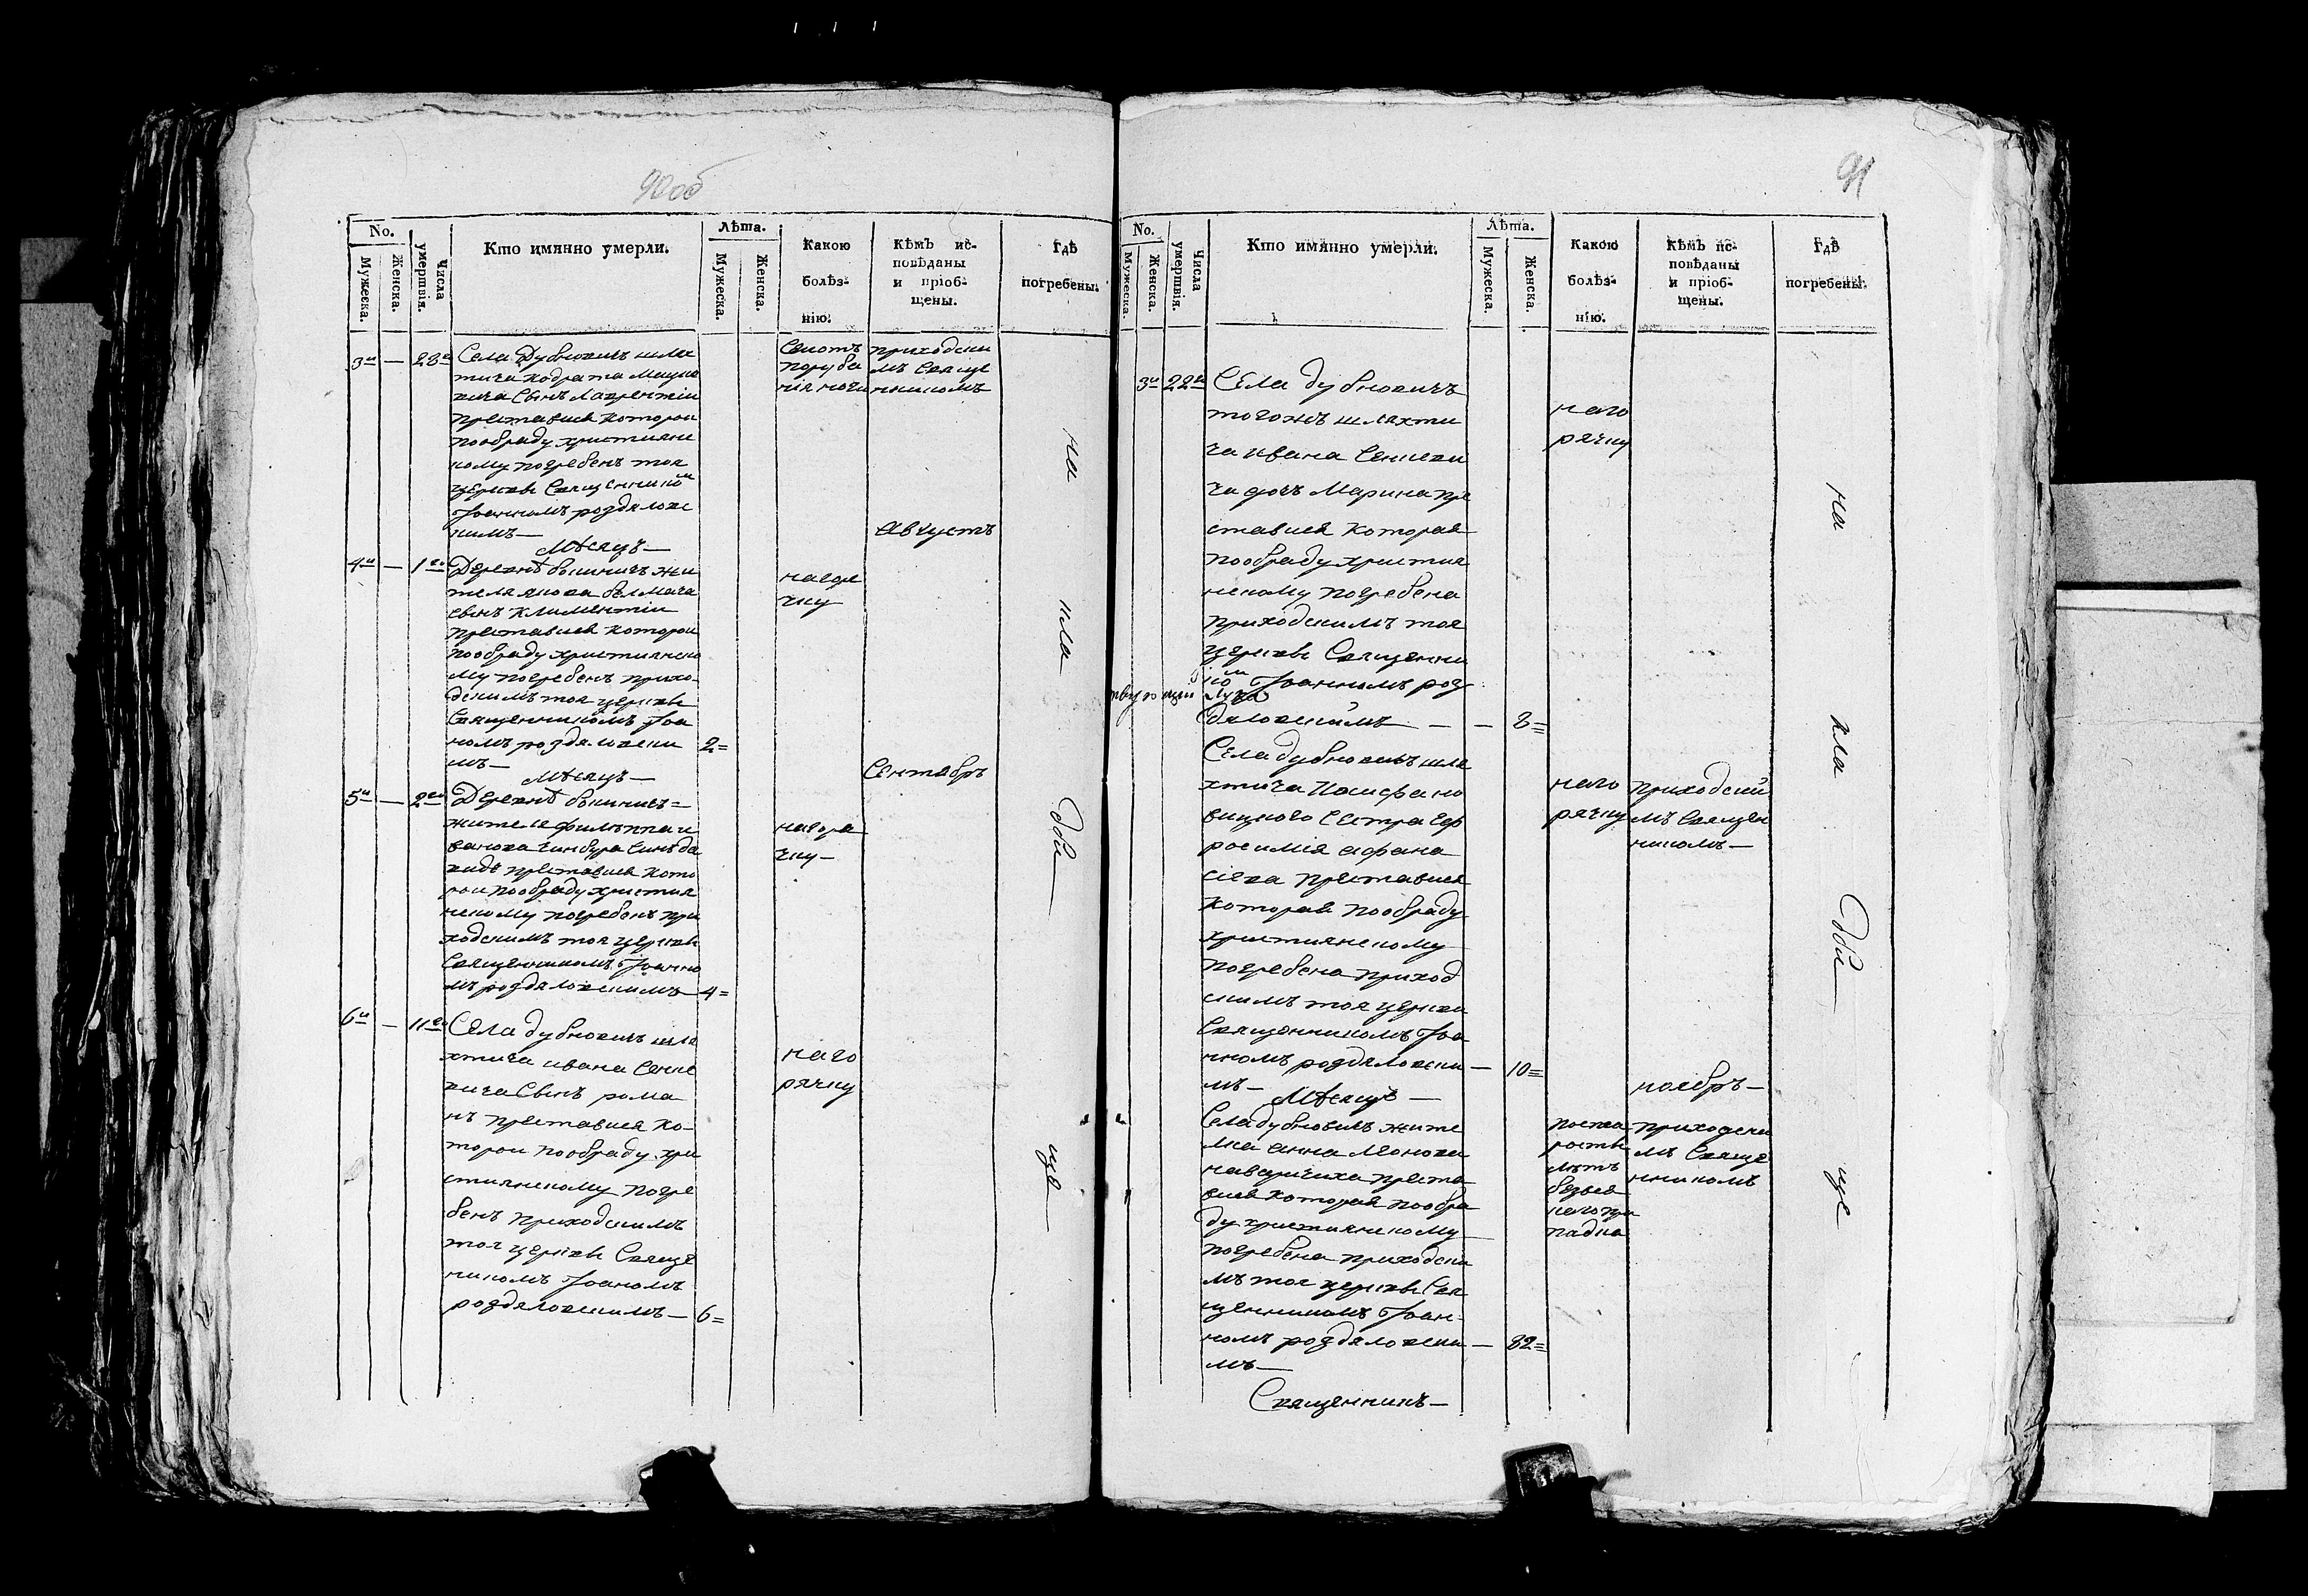 90об
No.
Мужеска.
Женска.
Числа умертвія.
Кто имянно умерли.
Лѣта.
Мужеска.
Женска.
Какою болѣз-
нію.
Кѣмъ ис-
повѣданы
и пріоб-
щены.
Гдѣ
погребены.
3и — 28
Села Дубновичъ шлях
тича Кодрата
вича Сынъ Лаврентіи
преставися которои
пообраду християнс
кому погребенъ тоя
церкви Священником
Іоанномъ роздяловс
кимъ —
приходски
мъ Свяще
нникомъ
Месяцъ — Августъ
4и — 1го
Деревнѣ бокиничъ жи
теля
Сынъ Климентіи
преставися которои
пообраду християнско
му погребенъ прихо-
дскимъ тоя церкви
Священникомъ Іоа
номъ роздяловски 2=
мъ —
нагоря
чку
Месяцъ — Сентябръ
5и — 2го
Деревнѣ бокиничъ =
жителя филиппа и
видъ преставися кото
рои пообраду християн
нскому погребенъ при
ходскимъ тоя церкви
Священникомъ Іоанно
мъ роздяловскимъ — 4=
нагоря
чку —
6и — 11го
Села дубновичъ шля
хтича ивана Сенке
вича Сынъ рома
нъ преставися ко-
торои пообраду хри
стиянскому погре
бенъ приходскимъ
тоя церкви Свяще
никомъ Іоаномъ
роздяловскимъ — 6=
наго
рячку
на кла дби ще
91
No.
Мужеска.
Женска.
Числа умертвія.
Кто имянно умерли.
Лѣта.
Мужеска.
Женска.
Какою
болѣз-
нію.
Кѣмъ ис-
повѣданы
и пріоб-
щены.
Гдѣ
погребены.
3и 22
Села дубновичъ
тогожъ шляхти
ча ивана Сенкеви
ча дочъ Марина пре
ставися которая
пообраду християн
нскому погребена
приходскимъ тоя
церкви Священни
ком Іоанномъ роз
дяловскимъ — — 8=
наго
рячку
Села дубновичъ шля
хтича
Сестра Еф
росимія афана
сіева преставися
которая пообраду
християнскому
погребена приход
скимъ тоя церкви
Священникомъ Іоа
нномъ роздяловски — 10=
мъ —
наго
рячку
приходский
мъ Священ
никомъ —
Месяцъ — ноябръ —
Села дубновичъ жите
лка анна
преста
вися которая пообра
ду християнскому
погребена приходски
мъ тоя церкви Свя
щенникомъ Іоан-
номъ роздяловски — 82=
мъ —
поста
рости
лѣтъ
безвся
кого при
падка
приходски
мъ Свяще
нникомъ
Священникъ —
на кла дби ще